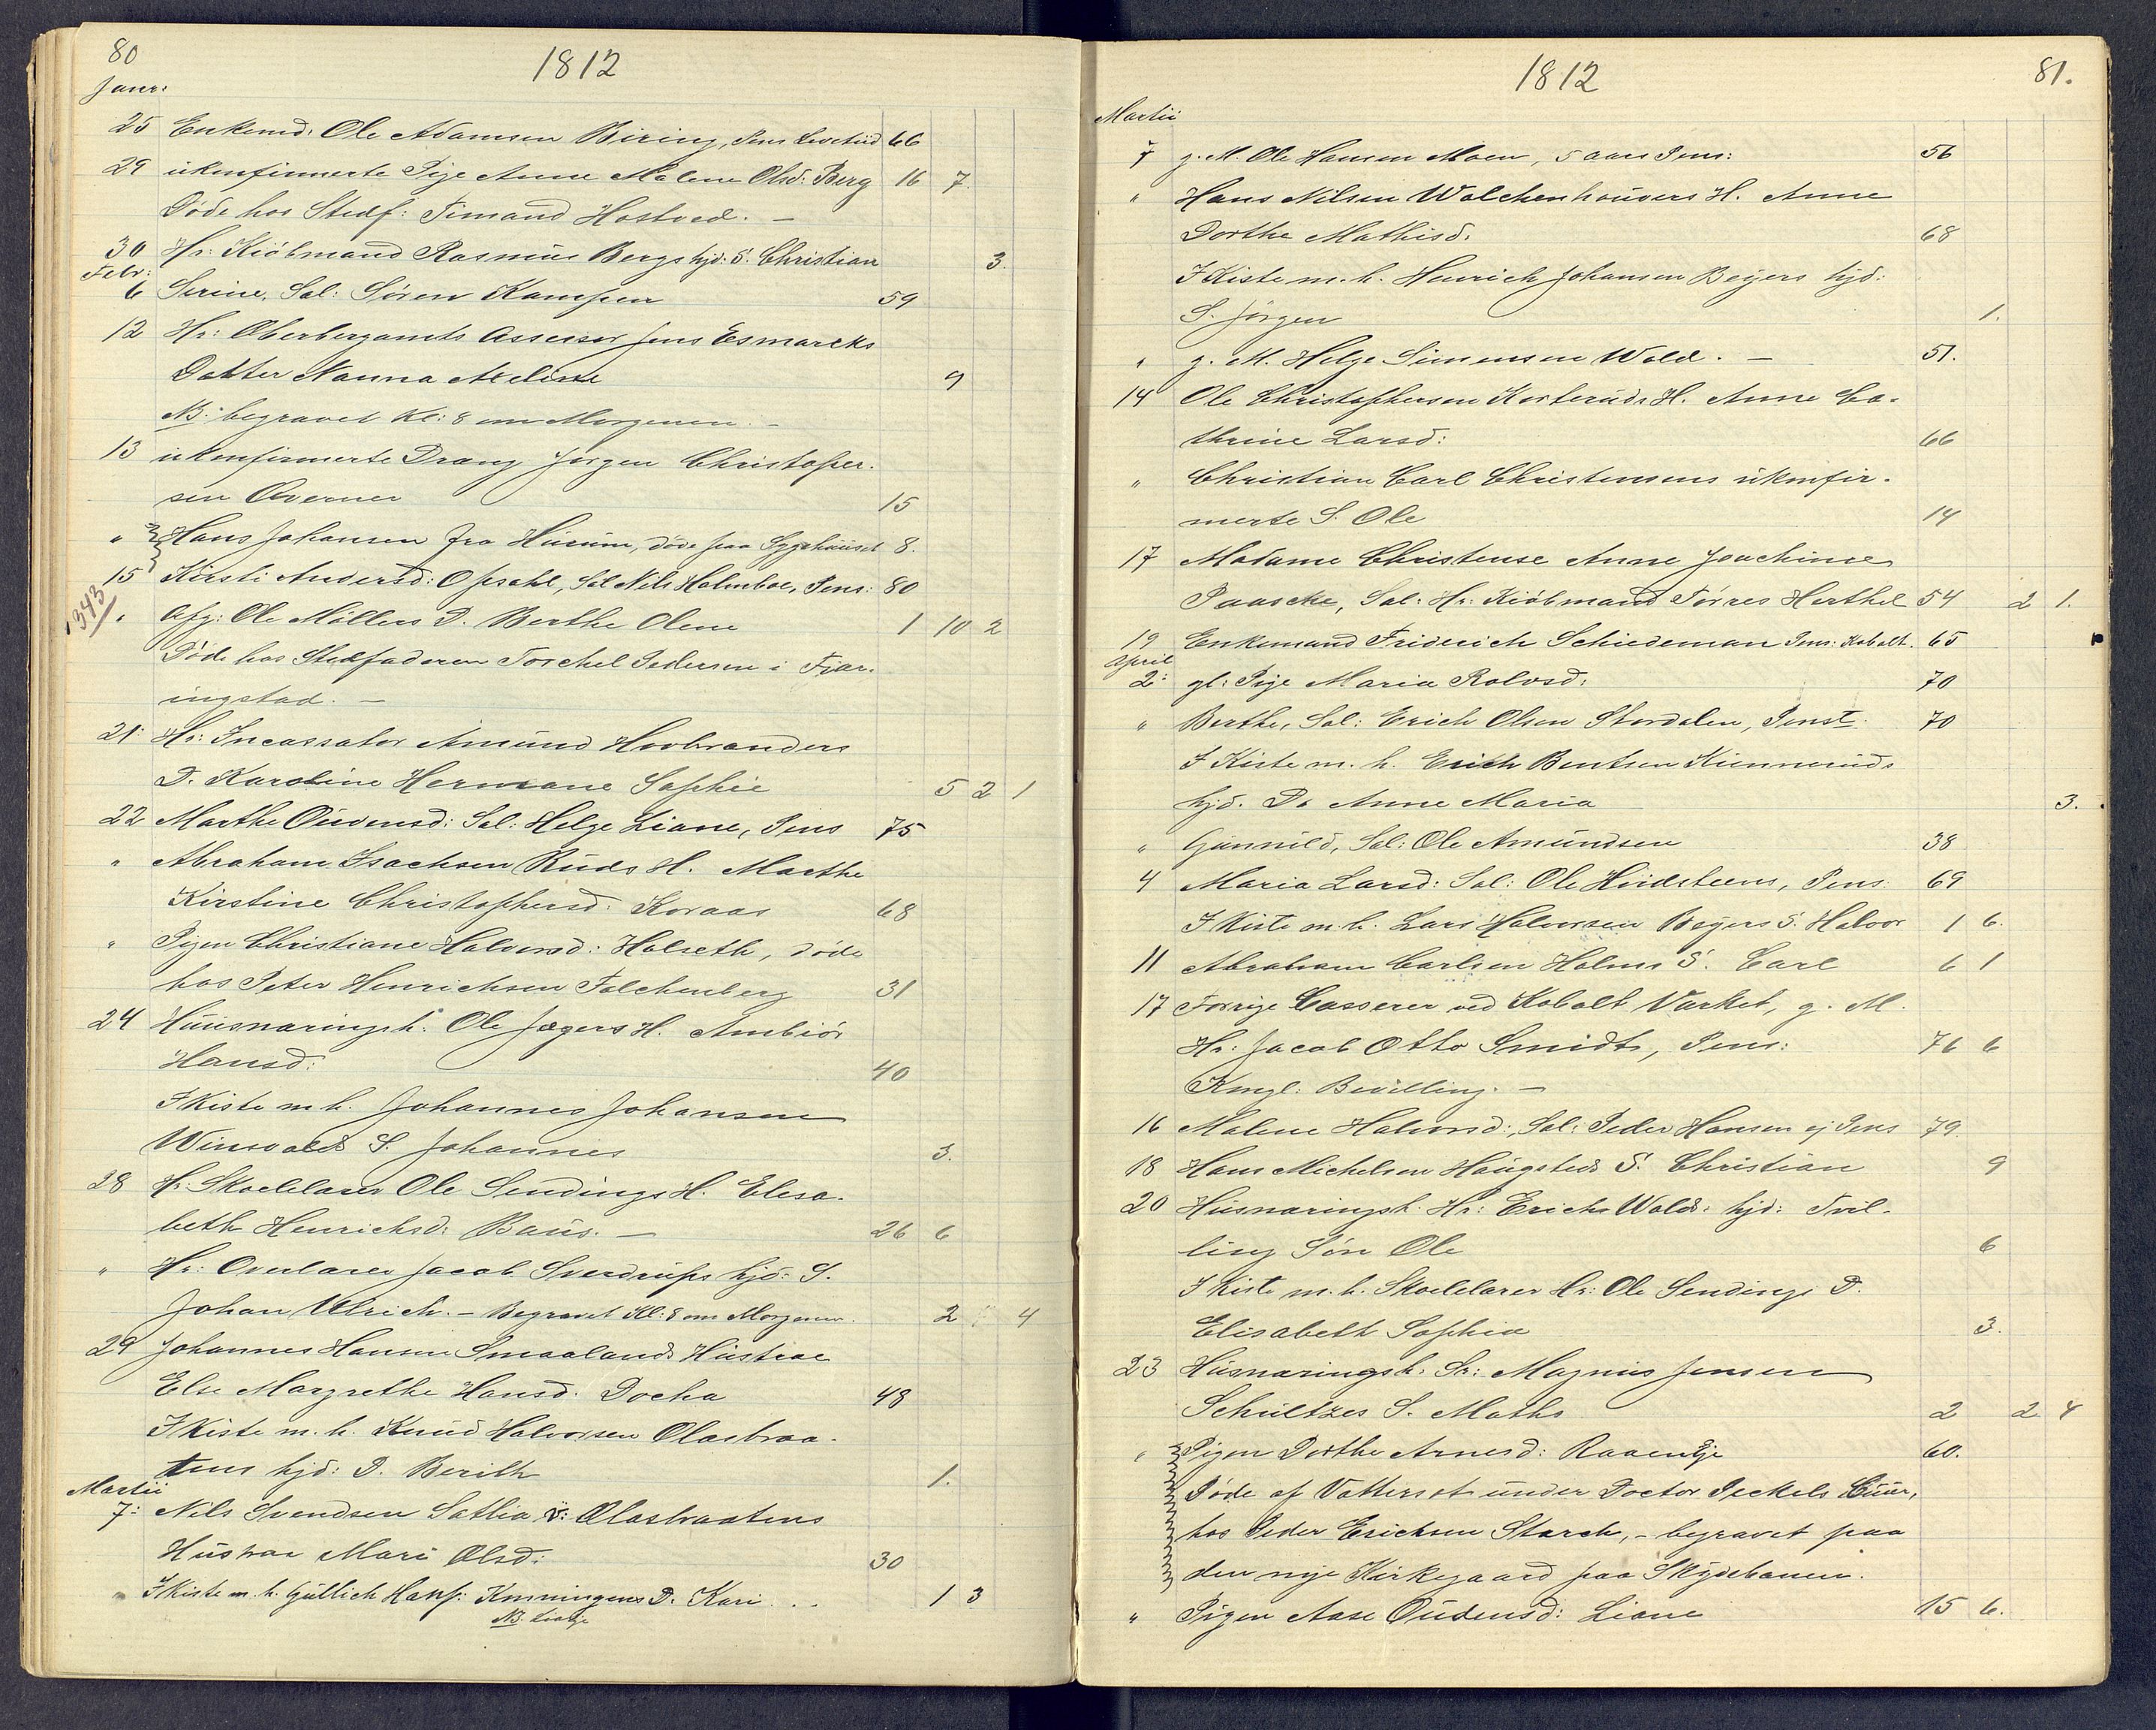 80
1812
Janr:
25 Enkemd: Ole Adamsen Biring, Pens Levetiid 66
29 ukonfirmerte Pige Anne Malene Olsd: Berg 16 7.
Døde hos Stedf: Timand Hostved. —
30 Hr: Kiöbmand Rasmus Bergs hjd: S. Christian 3.
Febr:
6 Serine, Sal: Sören Kampen 59
12 Hr: Oberbergamts Assessor Jens Esmarcks
Dotter Nanna Meline 9
NB: begravet Kl: 8 om Morgenen. —
13 ukonfirmerte Dreng Jörgen Christopher-
sen Overner 15
" Hans Johansen fra Hurum, döde paa Sygehuuset 8.
15 Kirsti Andersd: Opsahl, Sal Nils Holmboe, Pens: 80
1343
" Afg: Ole Möllers D. Berthe Olene 1 10 2
Döde hos Stedfaderen Torchel Pedersen i Fjar-
ingstad. —
21 Hr: Incassator Amund Hovbranders
D. Karoline Hermane Sophie 5 2 1
22 Marthe Ouvensd: Sal: Helge Liane, Pens 75
" Abraham Isachsen Ruds H. Marthe
Kirstine Christophersd: Koraas 68
" Pigen Christiane Halvorsd: Holseth, döde
hos Peter Henrichsen Falchenberg 31
24 Huusnaringsh: Ole Jægers H. Ambiör
Hansd: 40
I Kiste m.h. Johannes Johansen
Winsvalds S. Johannes 3.
28 Hr. Skoelelarer Ole Sendings H. Elisa-
beth Henrichsd: Baus. — 26 6
" Hr: Overlarer Jacob Sverdrups hjd: S.
Johan Ulrich. — Begravet Kl: 8 om Morgenen. 2 4
29 Johannes Hansen Smaalands Hustrae
Else Margrethe Hansd: Docka 48
I Kiste m.h. Knud Halvorsen Olasbraa-
tens hjd: D. Berith 1.
Martii
7: Nils Svendsen Satlia v: Olasbraatens
Hustrae Mari Olsd: 30
I Kiste m.h. Gullich Hansf: Kmningens D. Kari . . 1 3
81.
1812
Martii
7 g. M. Ole Hansen Moen, 5 aars Pens: 56
" Hans Nilsen Walchenhouvers H. Anne
Dorthe Mathisd: 68
I Kiste m.h. Henrich Johansen Beyers hjd:
S. Jörgen 1.
" g. M. Helge Simensen Wold. — 51.
14 Ole Christophersen Korteruds H. Anne Ca-
thrine Larsd: 66
" Christian Carl Christensens ukonfir-
merte S. Ole 14
17 Madame Christense Anne Joachime
Paascke, Sal: Hr: Kiöbmand Törres Herthel 54 2 1.
19 Enkemand Friderich Schiedeman Pens: Kobolt. 65
April
2: gl: Pige Maria Rolvsd: 70
" Berthe, Sal: Erich Olsen Stordalen, Penst. 70
I Kiste m.h. Erich Bentsen Kienneruds
hjd. D. Anne Maria 3.
" Gunnild, Sal: Ole Amundsen 38
4 Maria Larsd: Sal: Ole Hvidsteens, Pens. 69
I Kiste m.h. Lars Halvorsen Beyers S. Halvor 1 6.
11 Abraham Carlsen Holms S. Carl 6 1
17 Forrige Casserer ved Kobolt Varket, g. M.
Hr: Jacob Otto Smidt, Pens: 76 6
Kongl: Bevilling. —
16 Malene Halvorsd:, Sal: Peder Hansen ej Pens 79.
18 Hans Michelsen Haugsteds S. Christian 9
20 Husnaringsh: Hr: Erichs Wolds hjd: Tvil-
ling Sön Ole 6
I Kiste m.h. Skoelelarer Hr: Ole Sendings D.
Elisabeth Sophia 3.
23 Husnaringsh: Sr: Magnus Jensen
Schultzes S. Maths 2 2 4
" Pigen Dorthe Arnesd: Raaen Eje 60.
Døde af Vattersot under Doctor Peckels Cuur,
hos Peder Erichsen Starch, - begravet paa
den nye Kirkegaard paa Skydebanen.
" Pigen Aase Oudensd: Liane 15 6.